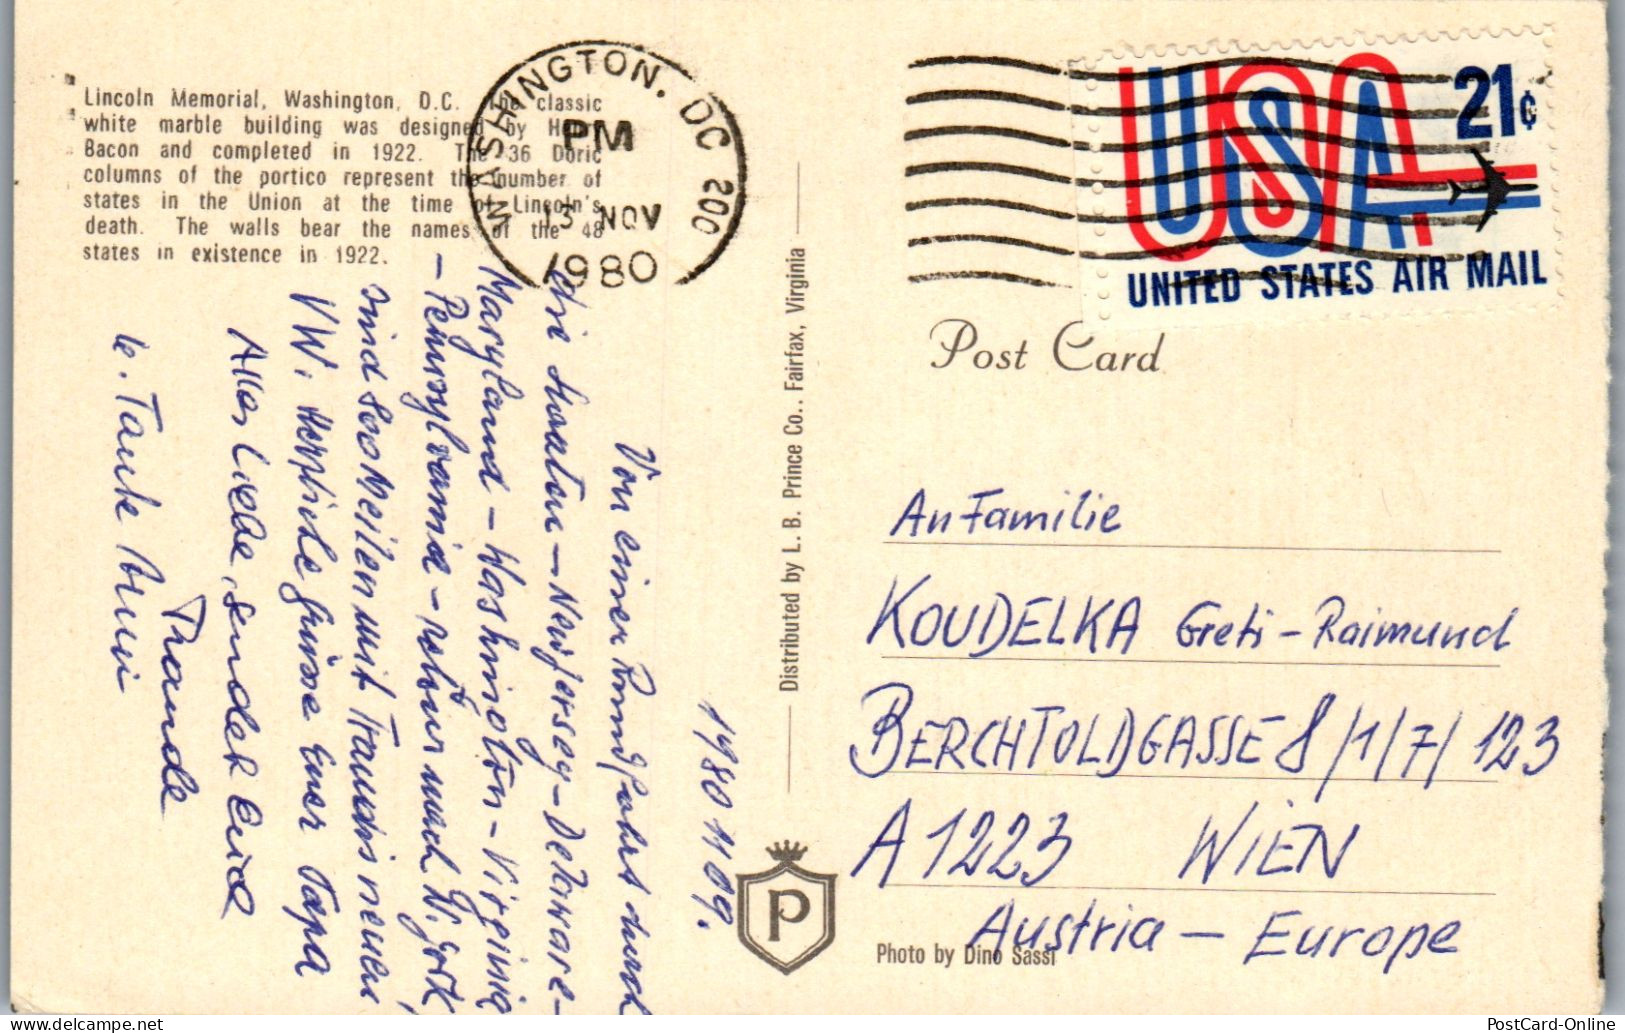 Lincoln Memorial, Washington, D.C. The classic
white marble building was designed by Henry
Bacon and completed in 1922. The 36 Doric
columns of the portico represent the number of
states in the Union at the time of Lincoln's
death. The walls bear the names of the 48
states in existence in 1922.
WASHINGTON, DC 200
PM
13 NOV
1980
USA 21¢
UNITED STATES AIR MAIL
Post Card
1980 11 09.
Von einer Rundfahrt durch
die Staaten – New Jersey – Delaware –
Maryland – Washington – Virginia
– Pennsylvania – retour nach N. York,
sind 800 Meilen mit Traudis neuen
VW. Herzliche Grüsse Euer Papa
Alles Liebe, sendet Euch
Traude
u. Tante Anni
Distributed by L. B. Prince Co., Fairfax, Virginia
P
An Familie
KOUDELKA Greti – Raimund
BERCHTOLDGASSE 8/1/7/123
A 1223 WIEN
Austria – Europe
Photo by Dino Sassi
www.delcampe.net
PostCard-Online